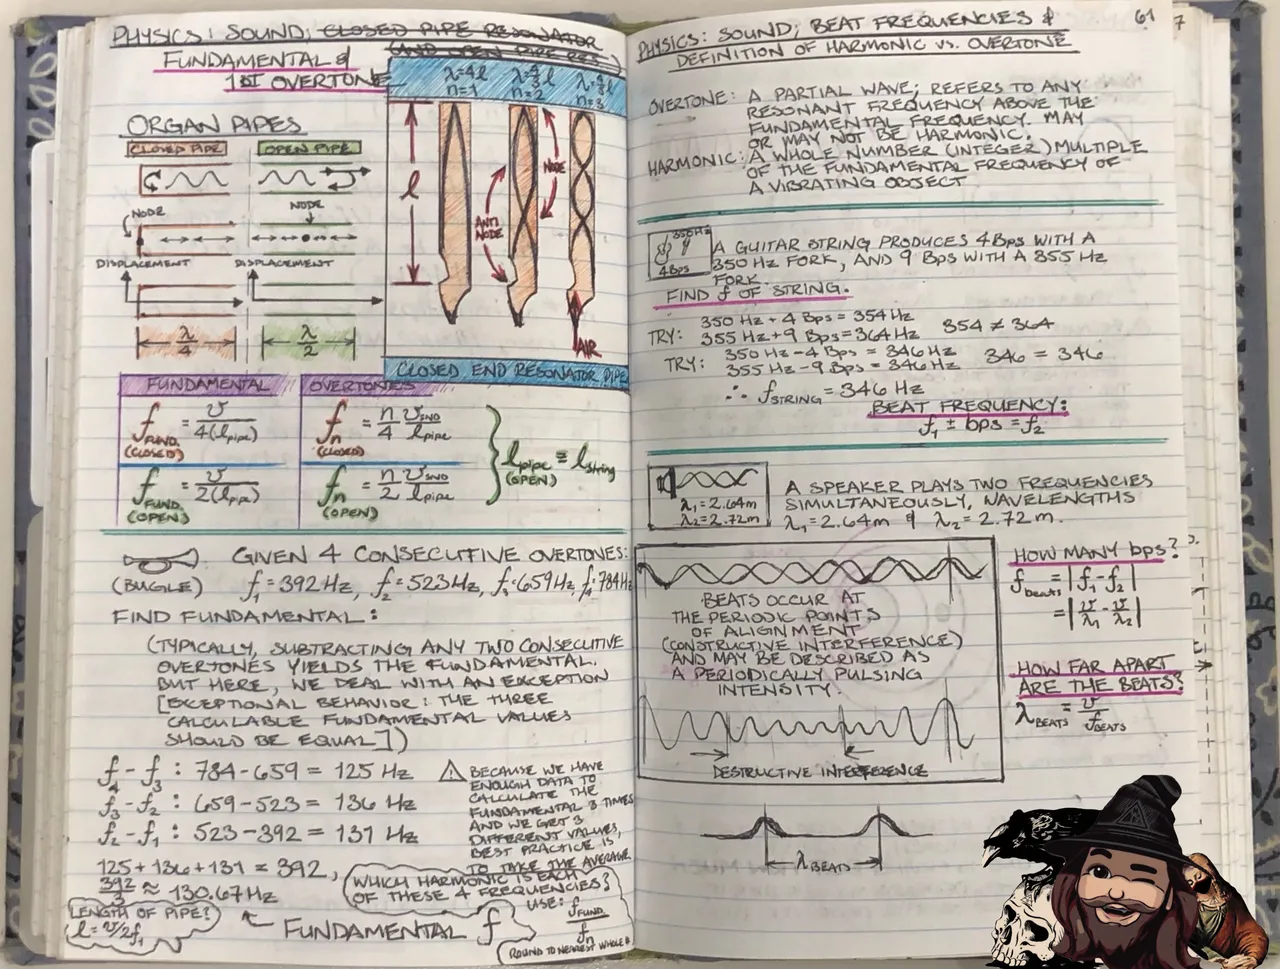 PHYSICS: SOUND; CLOSED PIPE RESONATOR
(AND OPEN PIPE RES.)
FUNDAMENTAL &
1ST OVERTONE
ORGAN PIPES
CLOSED PIPE
OPEN PIPE
NODE
NODE
DISPLACEMENT
DISPLACEMENT
λ/4
λ/2
λ=4l
n=1
λ=4/3 l
n=2
λ=4/5 l
n=3
l
ANTI
NODE
NODE
AIR
CLOSED END RESONATOR PIPE
FUNDAMENTAL
OVERTONES
f FUND. (CLOSED) = v/4(l pipe)
f n (CLOSED) = n/4 v SND/l pipe
f FUND. (OPEN) = v/2(l pipe)
f n (OPEN) = n/2 v SND/l pipe
l pipe (OPEN) ≅ l string
(BUGLE)
GIVEN 4 CONSECUTIVE OVERTONES:
f₁=392 Hz, f₂=523 Hz, f₃=659 Hz, f₄=784 Hz
FIND FUNDAMENTAL:
(TYPICALLY, SUBTRACTING ANY TWO CONSECUTIVE
OVERTONES YIELDS THE FUNDAMENTAL.
BUT HERE, WE DEAL WITH AN EXCEPTION
[EXCEPTIONAL BEHAVIOR: THE THREE
CALCULABLE FUNDAMENTAL VALUES
SHOULD BE EQUAL])
f₄-f₃: 784-659 = 125 Hz
f₃-f₂: 659-523 = 136 Hz
f₂-f₁: 523-392 = 131 Hz
125+136+131 = 392,
392/3 ≈ 130.67 Hz
BECAUSE WE HAVE
ENOUGH DATA TO
CALCULATE THE
FUNDAMENTAL 3 TIMES
AND WE GET 3
DIFFERENT VALUES,
BEST PRACTICE IS
TO TAKE THE AVERAGE
WHICH HARMONIC IS EACH
OF THESE 4 FREQUENCIES?
USE: f FUND/f n
ROUND TO NEAREST WHOLE #
LENGTH OF PIPE?
l = v/2f₁
FUNDAMENTAL f
61
7
PHYSICS: SOUND; BEAT FREQUENCIES &
DEFINITION OF HARMONIC VS. OVERTONE
OVERTONE: A PARTIAL WAVE; REFERS TO ANY
RESONANT FREQUENCY ABOVE THE
FUNDAMENTAL FREQUENCY. MAY
OR MAY NOT BE HARMONIC.
HARMONIC: A WHOLE NUMBER (INTEGER) MULTIPLE
OF THE FUNDAMENTAL FREQUENCY OF
A VIBRATING OBJECT
350Hz
4Bps
A GUITAR STRING PRODUCES 4 Bps WITH A
350 Hz FORK, AND 9 Bps WITH A 355 Hz
FORK.
FIND f OF STRING.
TRY: 350 Hz + 4 Bps = 354 Hz
355 Hz + 9 Bps = 364 Hz 354 ≠ 364
TRY: 350 Hz - 4 Bps = 346 Hz
355 Hz - 9 Bps = 346 Hz 346 = 346
∴ f STRING = 346 Hz
BEAT FREQUENCY:
f₁ ± bps = f₂
λ₁=2.64m
λ₂=2.72m
A SPEAKER PLAYS TWO FREQUENCIES
SIMULTANEOUSLY, WAVELENGTHS
λ₁=2.64m & λ₂=2.72m.
BEATS OCCUR AT
THE PERIODIC POINTS
OF ALIGNMENT
(CONSTRUCTIVE INTERFERENCE)
AND MAY BE DESCRIBED AS
A PERIODICALLY PULSING
INTENSITY.
DESTRUCTIVE INTERFERENCE
HOW MANY bps?
f beats = |f₁-f₂|
= |v/λ₁ - v/λ₂|
HOW FAR APART
ARE THE BEATS?
λ BEATS = v/f BEATS
λ BEATS